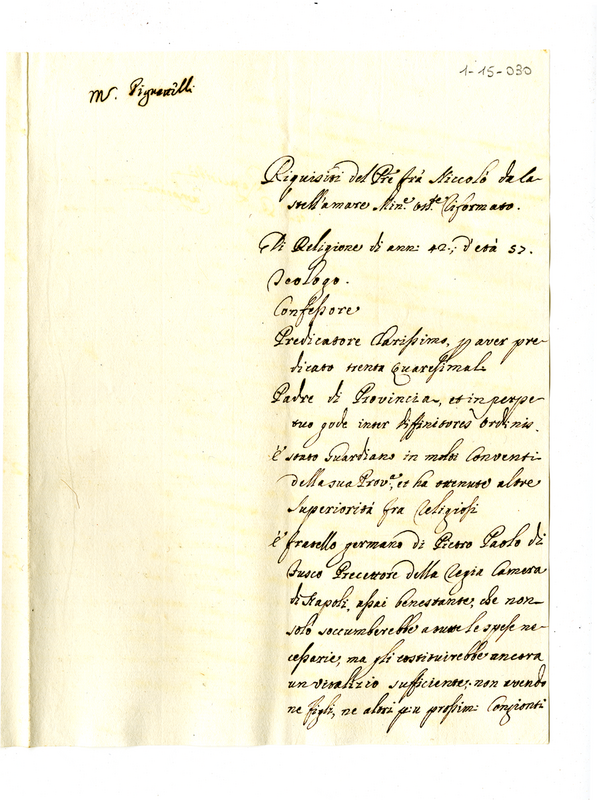 1-15-030
Mr. Pignatelli
Riquisiti del Pre frà Niccolò da la
stell'amare Min.e Oss.te Riformato.
Di Religione di anni 42., d'età 57.
Teologo.
Confessore
Predicatore Clarissimo, p aver pre=
dicato trenta Quaresimali
Padre di Provincia, et in perpe=
tuo gode inter diffinitores Ordinis.
è stato Guardiano in molti Conventi
della sua Prov.a, et ha ottenute altre
superiorità fra Religiosi
è fratello germano di Pietro Paolo di
Fusco Precettore della Regia Camera
di Napoli, assai benestante, che non
solo soccumberebbe a tutte le spese ne=
cessarie, ma gli costituirebbe ancora
un vitalizio sufficiente, non avendo
ne figli, ne altri più prossimi Congionti